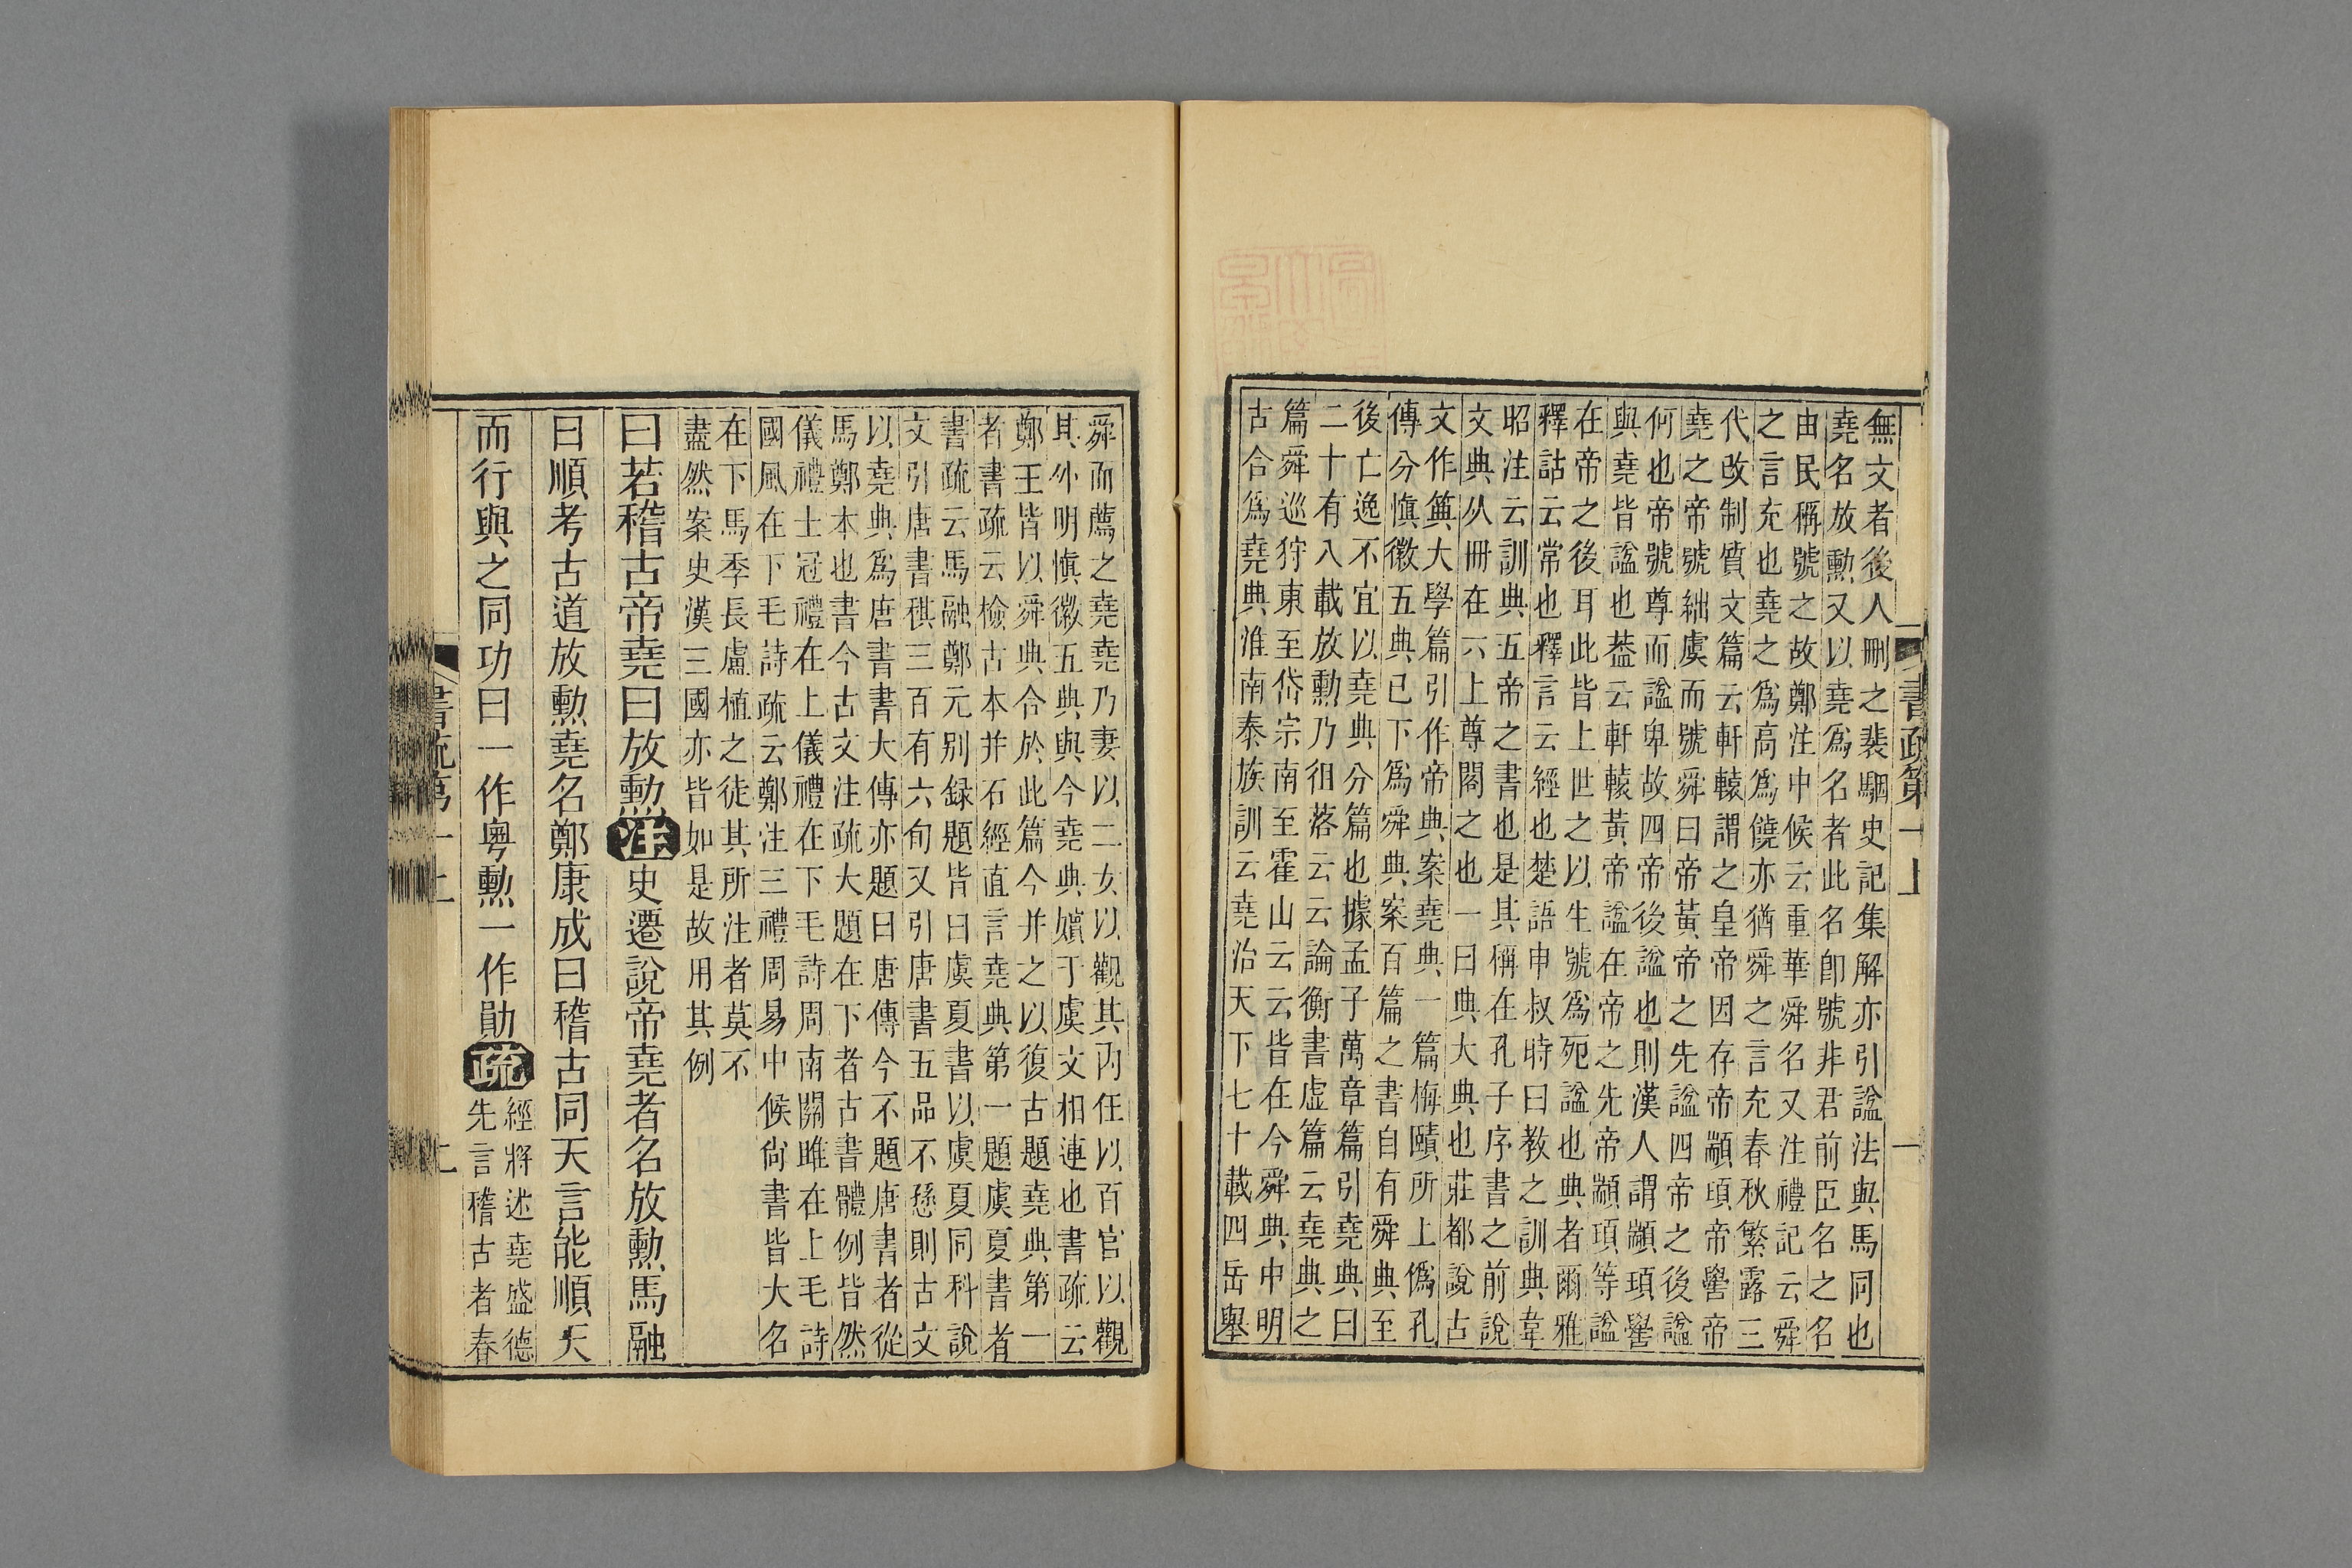 無文者後人刪之裴駰史記集解亦引諡法與馬同也
堯名放勳又以堯爲名者此名卽號非君前臣名之名
由民稱號之故鄭注中候云重華舜名又注禮記云舜
之言充也堯之爲高爲饒亦猶舜之言充春秋繁露三
代改制質文篇云軒轅謂之皇帝因存帝顓頊帝嚳帝
堯之帝號絀虞而號舜曰帝黃帝之先諡四帝之後諡
何也帝號尊而諡卑故四帝後諡也則漢人謂顓頊嚳
與堯皆諡也葢云軒轅黃帝諡在帝之先帝顓頊等諡
在帝之後耳此皆上世之以生號爲死諡也典者爾雅
釋詁云常也釋言云經也楚語申叔時曰教之訓典韋
昭注云訓典五帝之書也是其稱在孔子序書之前說
文典从冊在六上尊閣之也一曰典大典也莊都說古
文作籅大學篇引作帝典案堯典一篇梅賾所上僞孔
傳分愼徽五典已下爲舜典案百篇之書自有舜典至
後亡逸不宜以堯典分篇也據孟子萬章篇引堯典曰
二十有八載放勳乃徂落云云論衡書虛篇云堯典之
篇舜巡狩東至岱宗南至霍山云云皆在今舜典中明
古合爲堯典淮南泰族訓云堯治天下七十載四岳舉
書疏第一上
一
舜而薦之堯堯乃妻以二女以觀其內任以百官以觀
其外明愼徽五典與今堯典嬪于虞文相連也書疏云
鄭王皆以舜典合於此篇今并之以復古題堯典第一
者書疏云檢古本并石經直言堯典第一題虞夏書者
書疏云馬融鄭元别録題皆曰虞夏書以虞夏同科說
文引唐書稘三百有六旬又引唐書五品不愻則古文
以堯典爲唐書書大傳亦題曰唐傳今不題唐書者從
馬鄭本也書今古文注疏大題在下者古書體例皆然
儀禮士冠禮在上儀禮在下毛詩周南關雎在上毛詩
國風在下毛詩疏云鄭注三禮周易中候尙書皆大名
在下馬季長盧植之徒其所注者莫不
盡然案史漢三國亦皆如是故用其例
曰若稽古帝堯曰放勳注史遷說帝堯者名放勳馬融
曰順考古道放勳堯名鄭康成曰稽古同天言能順天
而行與之同功曰一作粤勳一作勛疏經將述堯盛德
先言稽古者春
書疏第一上